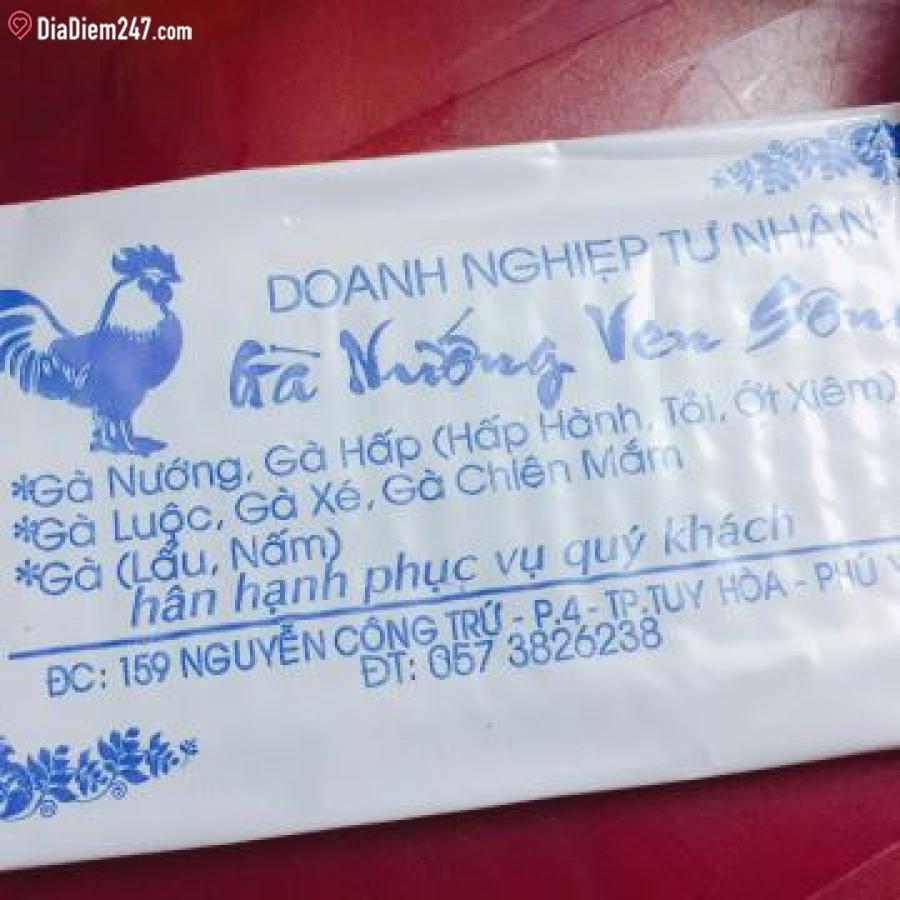 DiaDiem247.com
DOANH NGHIỆP TƯ NHÂN
Gà Nướng Ven Sông
*Gà Nướng, Gà Hấp (Hấp Hành, Tỏi, Ớt Xiêm)
*Gà Luộc, Gà Xé, Gà Chiên Mắm
*Gà (Lẩu, Nấm)
hân hạnh phục vụ quý khách
ĐC: 159 NGUYỄN CÔNG TRỨ - P.4 - TP.TUY HÒA - PHÚ Y
ĐT: 057 3826238